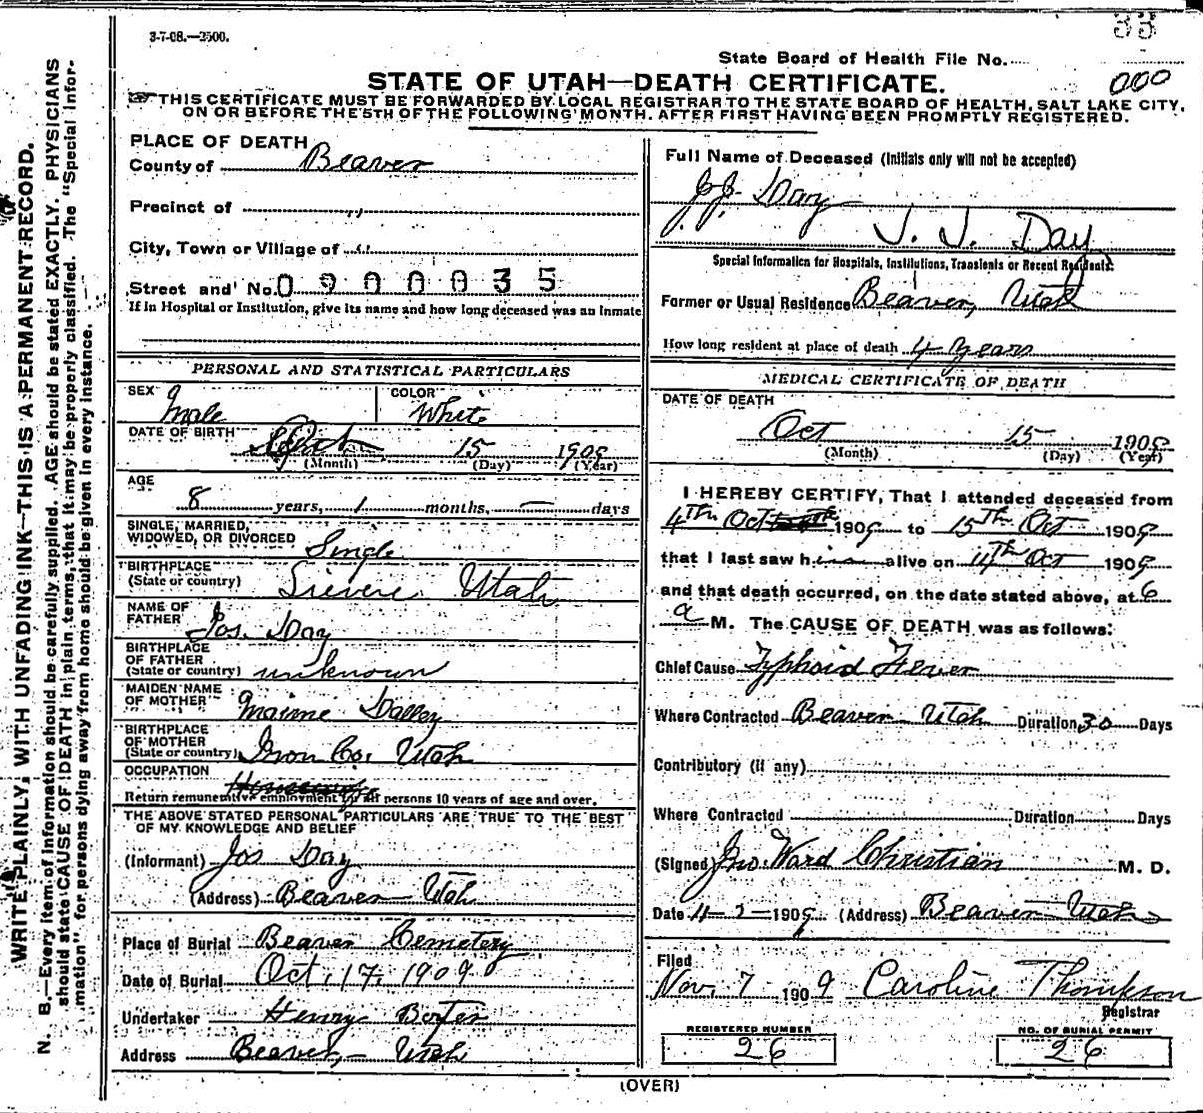 3-7-08.—2500.
33
State Board of Health File No.
000
STATE OF UTAH—DEATH CERTIFICATE.
THIS CERTIFICATE MUST BE FORWARDED BY LOCAL REGISTRAR TO THE STATE BOARD OF HEALTH, SALT LAKE CITY,
ON OR BEFORE THE 5TH OF THE FOLLOWING MONTH. AFTER FIRST HAVING BEEN PROMPTLY REGISTERED.
WRITE PLAINLY, WITH UNFADING INK—THIS IS A PERMANENT RECORD.
N. B.—Every item of information should be carefully supplied. AGE should be stated EXACTLY. PHYSICIANS
should state CAUSE OF DEATH in plain terms, that it may be properly classified. The "Special Infor-
mation" for persons dying away from home should be given in every instance.
PLACE OF DEATH
County of Beaver
Precinct of "
City, Town or Village of "
Street and No. 0900035
If in Hospital or Institution, give its name and how long deceased was an inmate
PERSONAL AND STATISTICAL PARTICULARS
SEX Male
COLOR White
DATE OF BIRTH 15 1909
(Month) (Day) (Year)
AGE
8 years, 1 months, — days
SINGLE, MARRIED,
WIDOWED, OR DIVORCED Single
BIRTHPLACE
(State or country) Utah
NAME OF
FATHER Jos. Day
BIRTHPLACE
OF FATHER
(State or country) unknown
MAIDEN NAME
OF MOTHER Maime Dalley
BIRTHPLACE
OF MOTHER
(State or country) Iron Co. Utah
OCCUPATION
Return remunerative employment for all persons 10 years of age and over.
THE ABOVE STATED PERSONAL PARTICULARS ARE TRUE TO THE BEST
OF MY KNOWLEDGE AND BELIEF
(Informant) Jos Day
(Address) Beaver Utah
Place of Burial Beaver Cemetery
Date of Burial Oct. 17, 1909
Undertaker Henry
Address Beaver, Utah
Full Name of Deceased (Initials only will not be accepted)
J.J. Day
J. J. Day
Special Information for Hospitals, Institutions, Transients or Recent Residents.
Former or Usual Residence Beaver, Utah
How long resident at place of death 4 years
MEDICAL CERTIFICATE OF DEATH
DATE OF DEATH
Oct 15 1909
(Month) (Day) (Year)
I HEREBY CERTIFY, That I attended deceased from
4th Oct 1909 to 15th Oct 1909
that I last saw him alive on 14th Oct 1909
and that death occurred, on the date stated above, at 6
a M. The CAUSE OF DEATH was as follows:
Chief Cause Typhoid Fever
Where Contracted Beaver Utah Duration 30 Days
Contributory (if any)
Where Contracted Duration Days
(Signed) Jno. Ward Christian M. D.
Date 11-2-1909 (Address) Beaver Utah
Filed
Nov. 7 1909 Caroline Thompson
Registrar
REGISTERED NUMBER
26
NO. OF BURIAL PERMIT
26
(OVER)